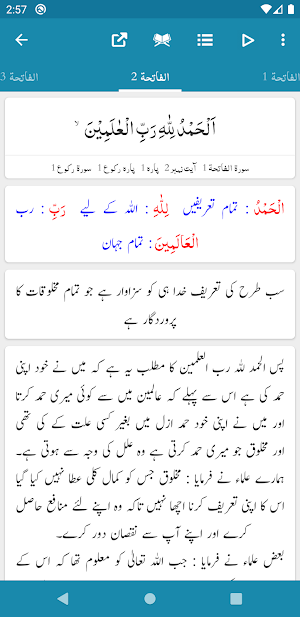 2:57
الفاتحة 1
الفاتحة 2
الفاتحة 3
اَلْحَمْدُ لِلّٰهِ رَبِّ الْعٰلَمِيْنَ ۙ
سورۃ الفاتحة 1 آیت نمبر 2 پارہ 1 پارہ رکوع 1 سورۃ رکوع 1
اَلْحَمْدُ : تمام تعریفیں لِلّٰهِ : اللہ کے لیے رَبِّ : رب
الْعَالَمِيْنَ : تمام جہان
سب طرح کی تعریف خدا ہی کو سزاوار ہے جو تمام مخلوقات کا
پروردگار ہے
پس الحمد للہ رب العلمین کا مطلب یہ ہے کہ میں نے خود اپنی
حمد کی ہے اس سے پہلے کہ عالمین میں سے کوئی میری حمد کرتا
اور میں نے اپنی خود حمد ازل میں بغیر کسی علت کے کی تھی
اور مخلوق جو میری حمد کرتی ہے وہ علل کی وجہ سے ہوتی ہے۔
ہمارے علماء نے فرمایا : مخلوق جس کو کمال کلی عطا نہیں کیا گیا
اس کا اپنی تعریف کرنا اچھا نہیں تاکہ وہ اپنے لئے منافع حاصل
کرے اور اپنے آپ سے نقصان دور کرے۔
بعض علماء نے فرمایا : جب اللہ تعالیٰ کو معلوم تھا کہ اس کے